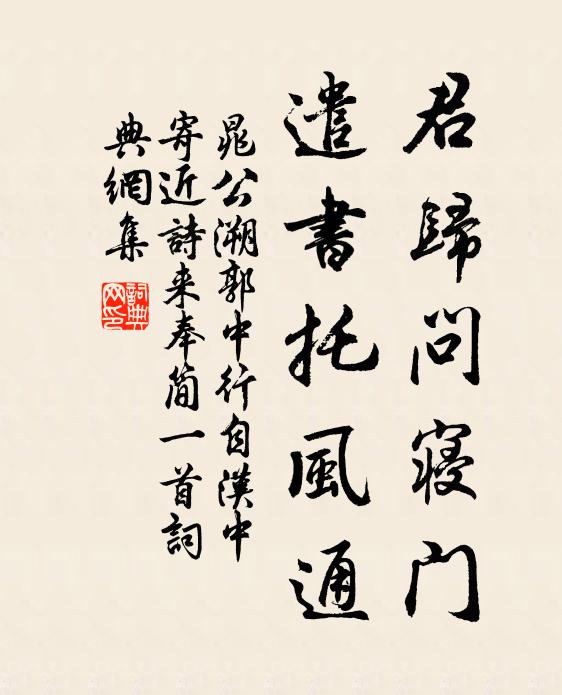 君歸問寢門
遣書托風通
晁公溯郭中行自漢中
寄近詩来奉簡一首詞
典網集
詞典网印